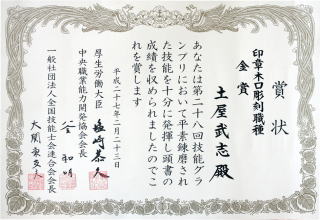 賞状
印章木口彫刻職種
金賞
土屋武志殿
あなたは第二十八回技能グラ
ンプリにおいて平素錬磨され
た技能を十分に発揮し頭書の
成績を収められましたのでこ
れを賞します
平成二十七年二月二十三日
厚生労働大臣
塩崎恭久
中央職業能力開発協会会長
釡和明
一般社団法人全国技能士会連合会会長
大関東支夫